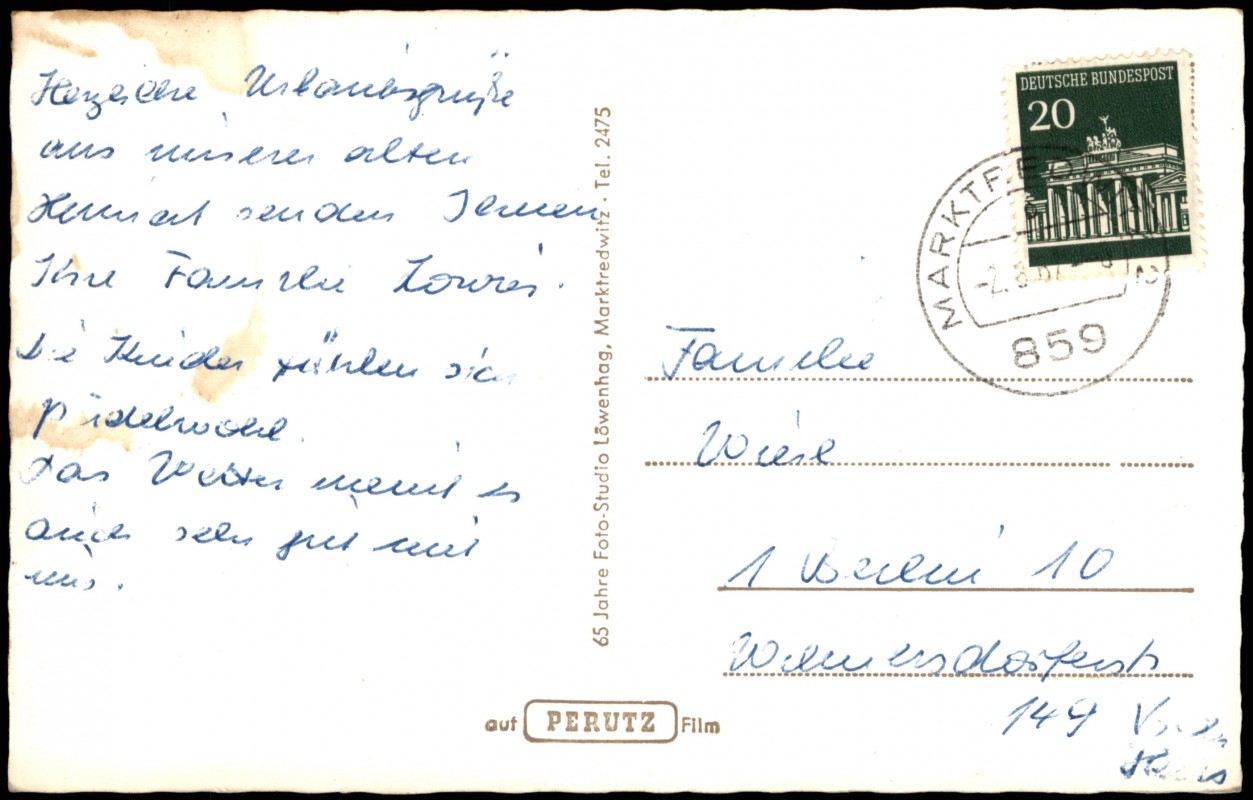 Herzliche Urlaubsgrüße
aus unserer alten
Heimat senden Ihnen
Ihre Familie
Die Kinder fühlen sich
pudelwohl.
Das Wetter meint es
auch sehr gut mit
uns.
65 Jahre Foto-Studio Löwenhag, Marktredwitz · Tel. 2475
auf PERUTZ Film
DEUTSCHE BUNDESPOST
20
MARKTREDWITZ
859
Familie
Wiese
1 Berlin 10
Wilmersdorferstr
149